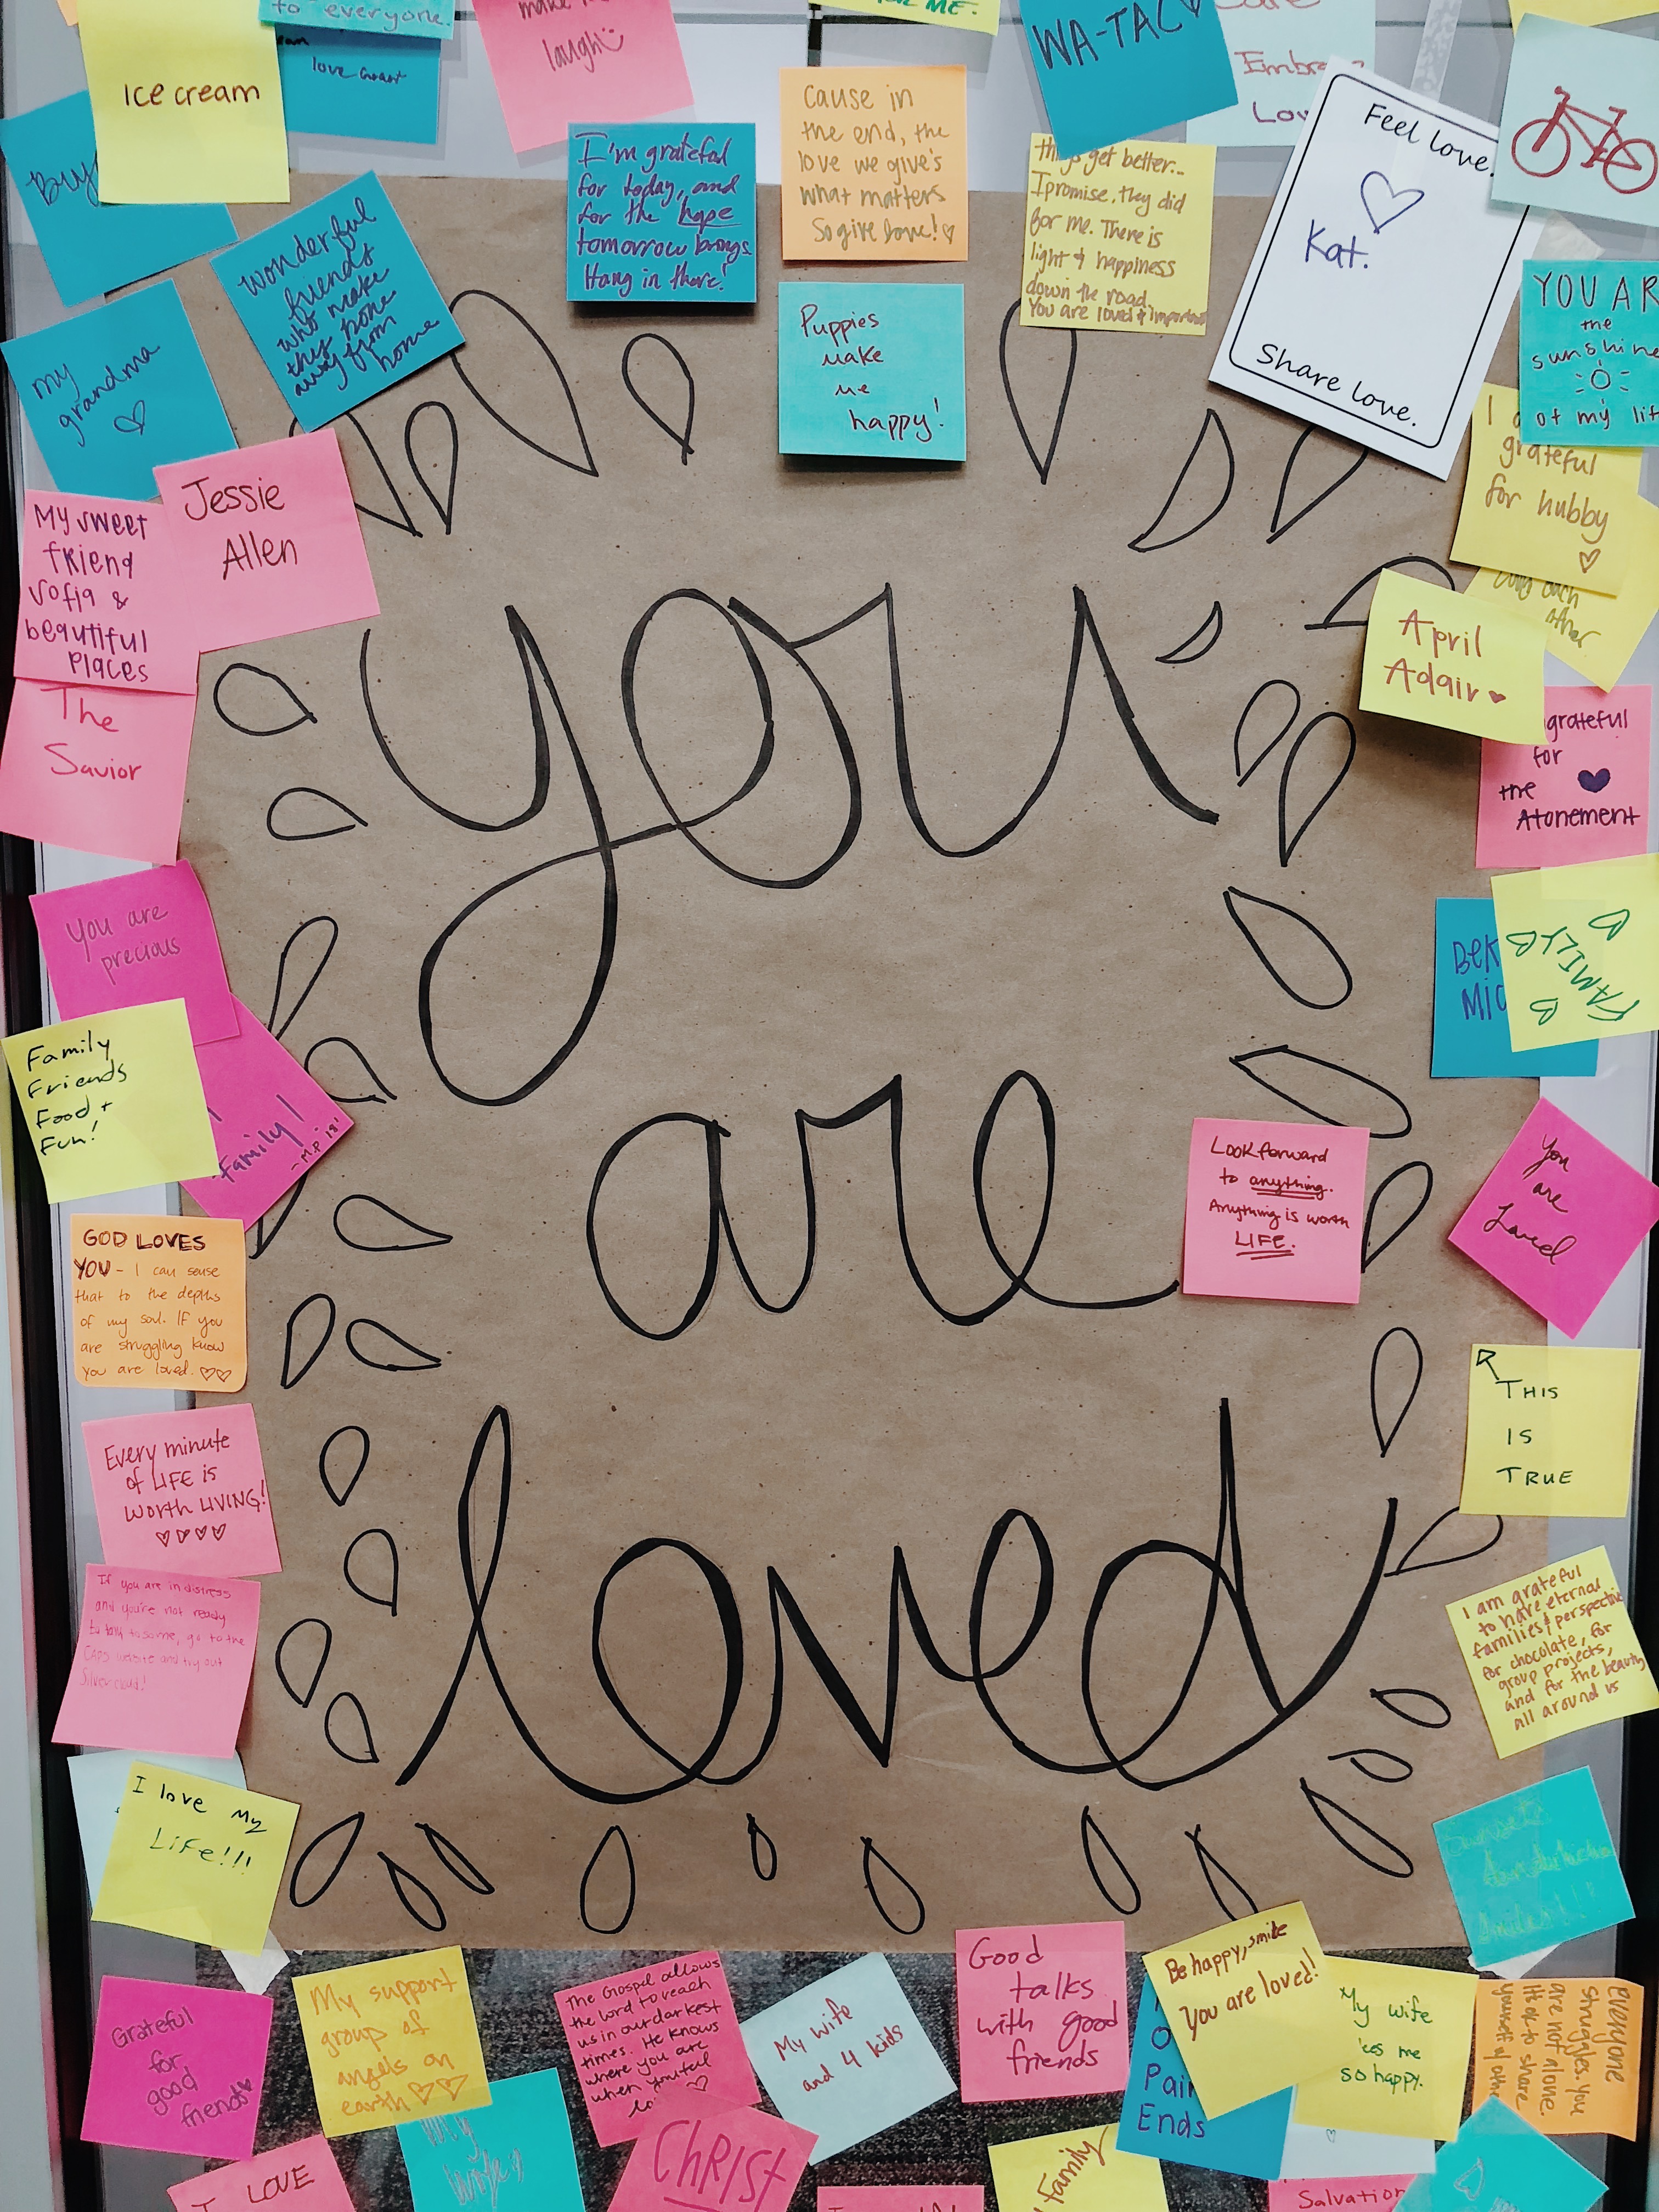 to everyone.
love Grant
Ice cream
make me
laugh
ME.
WA-TAC
Embrace
Love
Feel love.
Kat.
Share love.
wonderful
friends
who make
this home
away from
home
I'm grateful
for today, and
for the hope
tomorrow brings.
Hang in there!
Cause in
the end, the
love we give's
what matters
So give love!
things get better...
I promise. they did
for me. There is
light & happiness
down the road.
You are loved & important
Puppies
make
me
happy!
YOU AR
the
sunshine
of my life
my
grandma
I
grateful
for hubby
each
other
Jessie
Allen
My sweet
friend
Sofia &
beautiful
places
The
Savior
April
Adair
grateful
for
the
Atonement
you
are
loved
You are
precious
Family
Friends
Food +
Fun!
Family!
-M.P. 18'
BEK
MIC
FAMILY
Look forward
to anything.
Anything is worth
LIFE.
You
are
Loved
GOD LOVES
YOU - I can sense
that to the depths
of my soul. IF you
are struggling know
you are loved.
THIS
IS
TRUE
Every minute
of LIFE is
worth LIVING!
If you are in distress
and you're not ready
to talk to some, go to the
CAPS website and try out
Silvercloud!
I am grateful
to have eternal
families & perspective
for chocolate, for
group projects,
and for the beauty
all around us
I love My
LIFE!!!
Grateful
for
good
friends
My support
group of
angels on
earth
The Gospel allows
the Lord to reach
us in our darkest
times. He knows
where you are
when you feel
lo
My wife
and 4 kids
Good
talks
with good
friends
Be happy, smile
You are loved!
Pain
Ends
My wife
'ces me
so happy.
everyone
struggles. You
are not alone.
It's ok to share
yourself w/ others
I LOVE
My
wife
CHRIST
Family
Salvation